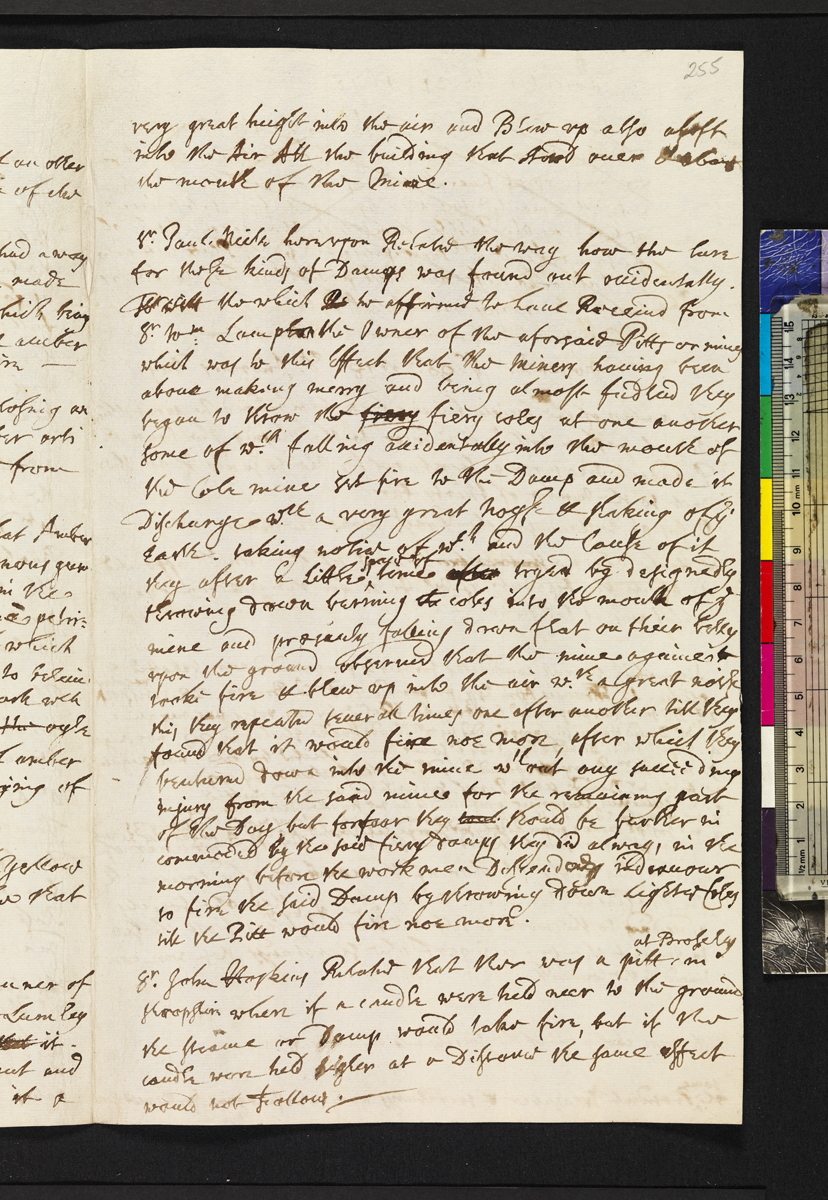 255
very great height into the air and Blow up also aloft
into the Air All the building that stood over & about
the mouth of the Mine.
Sr. Paul Neile hereupon Related the way how the Cure
for these kinds of Damps was found out accidentally.
the which he affirmed to have Received from
Sr. Wm. the Owner of the aforsaid Pitts or mines
which was to this Effect that the Miners having been
above making merry and being almost fudled they
began to throw the fiery coles at one another
some of wch. falling accidentally into the mouth of
the Cole mine set fire to the Damp and made it
Discharge wth a very great noyse & shaking of ye
Earth. taking notice of wch. and the Cause of it
they after a little space of time tryed by designedly
throwing down burning coles into the mouth of ye
mine and presently falling down flat on their belly
upon the ground observed that the mine againe
tooke fire & blew up into the air wth. a great noyse
this they repeated severall times one after another till they
found that it would fire noe more, after which they
ventured down into the mine wthout any succeeding
injury from the said mine for the remaining part
of the Day but forfear they should be further in
comoded by the said fiery damps they did always in the
morning before the workmen Descended indeavour
to fire the said Damp by throwing down Lighted Coles
till the Pitt would fire noe more.
at Brosely
Sr. John Hoskins Related that ther was a pitt in
Shropshire where if a candle were held neer to the ground
the steame or Damp would take fire, but if the
candle were held higher at a Distance the same effect
would not follow.
t an other
e of the
had a way
made
which being
amber
from
hat Amber
in the
which
amber
of
Yellow
that
owner of
Lumley
it.
out and
it a